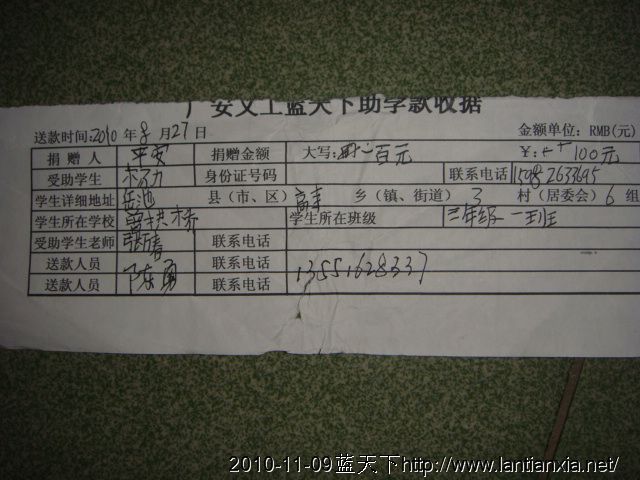 广安义工蓝天下助学款收据
送款时间:2010 年 8 月 27 日 金额单位: RMB(元)
捐 赠 人 平安 捐赠金额 大写: 一百元 ¥: 100元
受助学生 身份证号码 联系电话 15082633695
学生详细地址 岳池 县（市、区） 乡（镇、街道） 3 村（居委会） 6 组
学生所在学校 学生所在班级 三年级一班
受助学生老师 联系电话
送款人员 陈勇 联系电话 13551628337
送款人员 联系电话
2010-11-09蓝天下http://www.lantianxia.net/